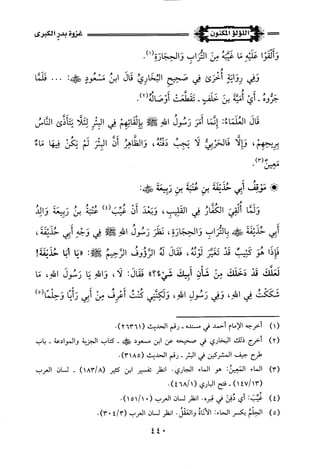 اللؤلؤ المكنون
غزوة بدر الكبرى
وَأَلْقَوْا عَلَيْهِ مَا غَيَّبَهُ مِنَ التُّرَابِ وَالحِجَارَةِ(١).
وَفِي رِوَايَةٍ أُخْرَى فِي صَحِيحِ البُخَارِيِّ قَالَ ابنُ مَسْعُودٍ ﷺ: ... فَلَمَّا
جَرُّوهُ ـ أَيْ أُمَيَّةَ بنَ خَلَفٍ ـ تَقَطَّعَتْ أَوْصَالُهُ(٢).
قَالَ العُلَمَاءُ: إِنَّمَا أَمَرَ رَسُولُ اللهِ ﷺ بِإِلْقَائِهِمْ فِي البِئْرِ لِئَلَّا يَتَأَذَّى النَّاسُ
بِرِيحِهِمْ، وَإِلَّا فَالحَرْبِيُّ لَا يَجِبُ دَفْنُهُ، وَالظَّاهِرُ أَنَّ البِئْرَ لَمْ يَكُنْ فِيهَا مَاءٌ
مَعِينٌ(٣).
* مَوْقِفُ أَبِي حُذَيْفَةَ بنِ عُتْبَةَ بنِ رَبِيعَةَ ﷺ:
وَلَمَّا أُلْقِيَ الكُفَّارُ فِي القَلِيبِ، وَبَعْدَ أَنْ غُيِّبَ(٤) عُتْبَةُ بنُ رَبِيعَةَ وَالِدُ
أَبِي حُذَيْفَةَ ﷺ بِالتُّرَابِ وَالحِجَارَةِ، نَظَرَ رَسُولُ اللهِ ﷺ فِي وَجْهِ أَبِي حُذَيْفَةَ،
فَإِذَا هُوَ كَئِيبٌ قَدْ تَغَيَّرَ لَوْنُهُ، فَقَالَ لَهُ الرَّؤُوفُ الرَّحِيمُ ﷺ: «يَا أَبَا حُذَيْفَةَ!
لَعَلَّكَ قَدْ دَخَلَكَ مِنْ شَأْنِ أَبِيكَ شَيْءٌ؟» فَقَالَ: لَا، وَاللهِ يَا رَسُولَ اللهِ، مَا
شَكَكْتُ فِي اللهِ، وَفِي رَسُولِ اللهِ، وَلَكِنِّي كُنْتُ أَعْرِفُ مِنْ أَبِي رَأْيًا وَحِلْمًا(٥)
(١) أخرجه الإمام أحمد في مسنده ـ رقم الحديث (٢٦٣٦١)
(٢) أخرج ذلك البخاري في صحيحه عن ابن مسعود ﷺ ـ كتاب الجزية والموادعة ـ باب
طرح جيف المشركين في البئر ـ رقم الحديث (٣١٨٥)
(٣) الماء المَعِينُ: هو الماء الجاري. انظر تفسير ابن كثير (١٨٣/٨) ـ لسان العرب
(١٤٧/١٣) ـ فتح الباري (٤٦٨/١)
(٤) غُيِّبَ: أي دُفِنَ في قبره. انظر لسان العرب (١٥١/١٠)
(٥) الحِلْمُ بكسر الحاء: الأنَاةُ والعَقْلُ. انظر لسان العرب (٣٠٤/٣)
٤٤٠